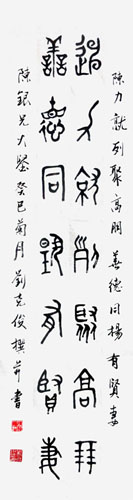 陳力就列聚高朋 善德同揚有賢妻
陳力就列聚高朋
善德同揚有賢妻
陳銀兄大鑒 癸巳菊月 劉克俊撰並書